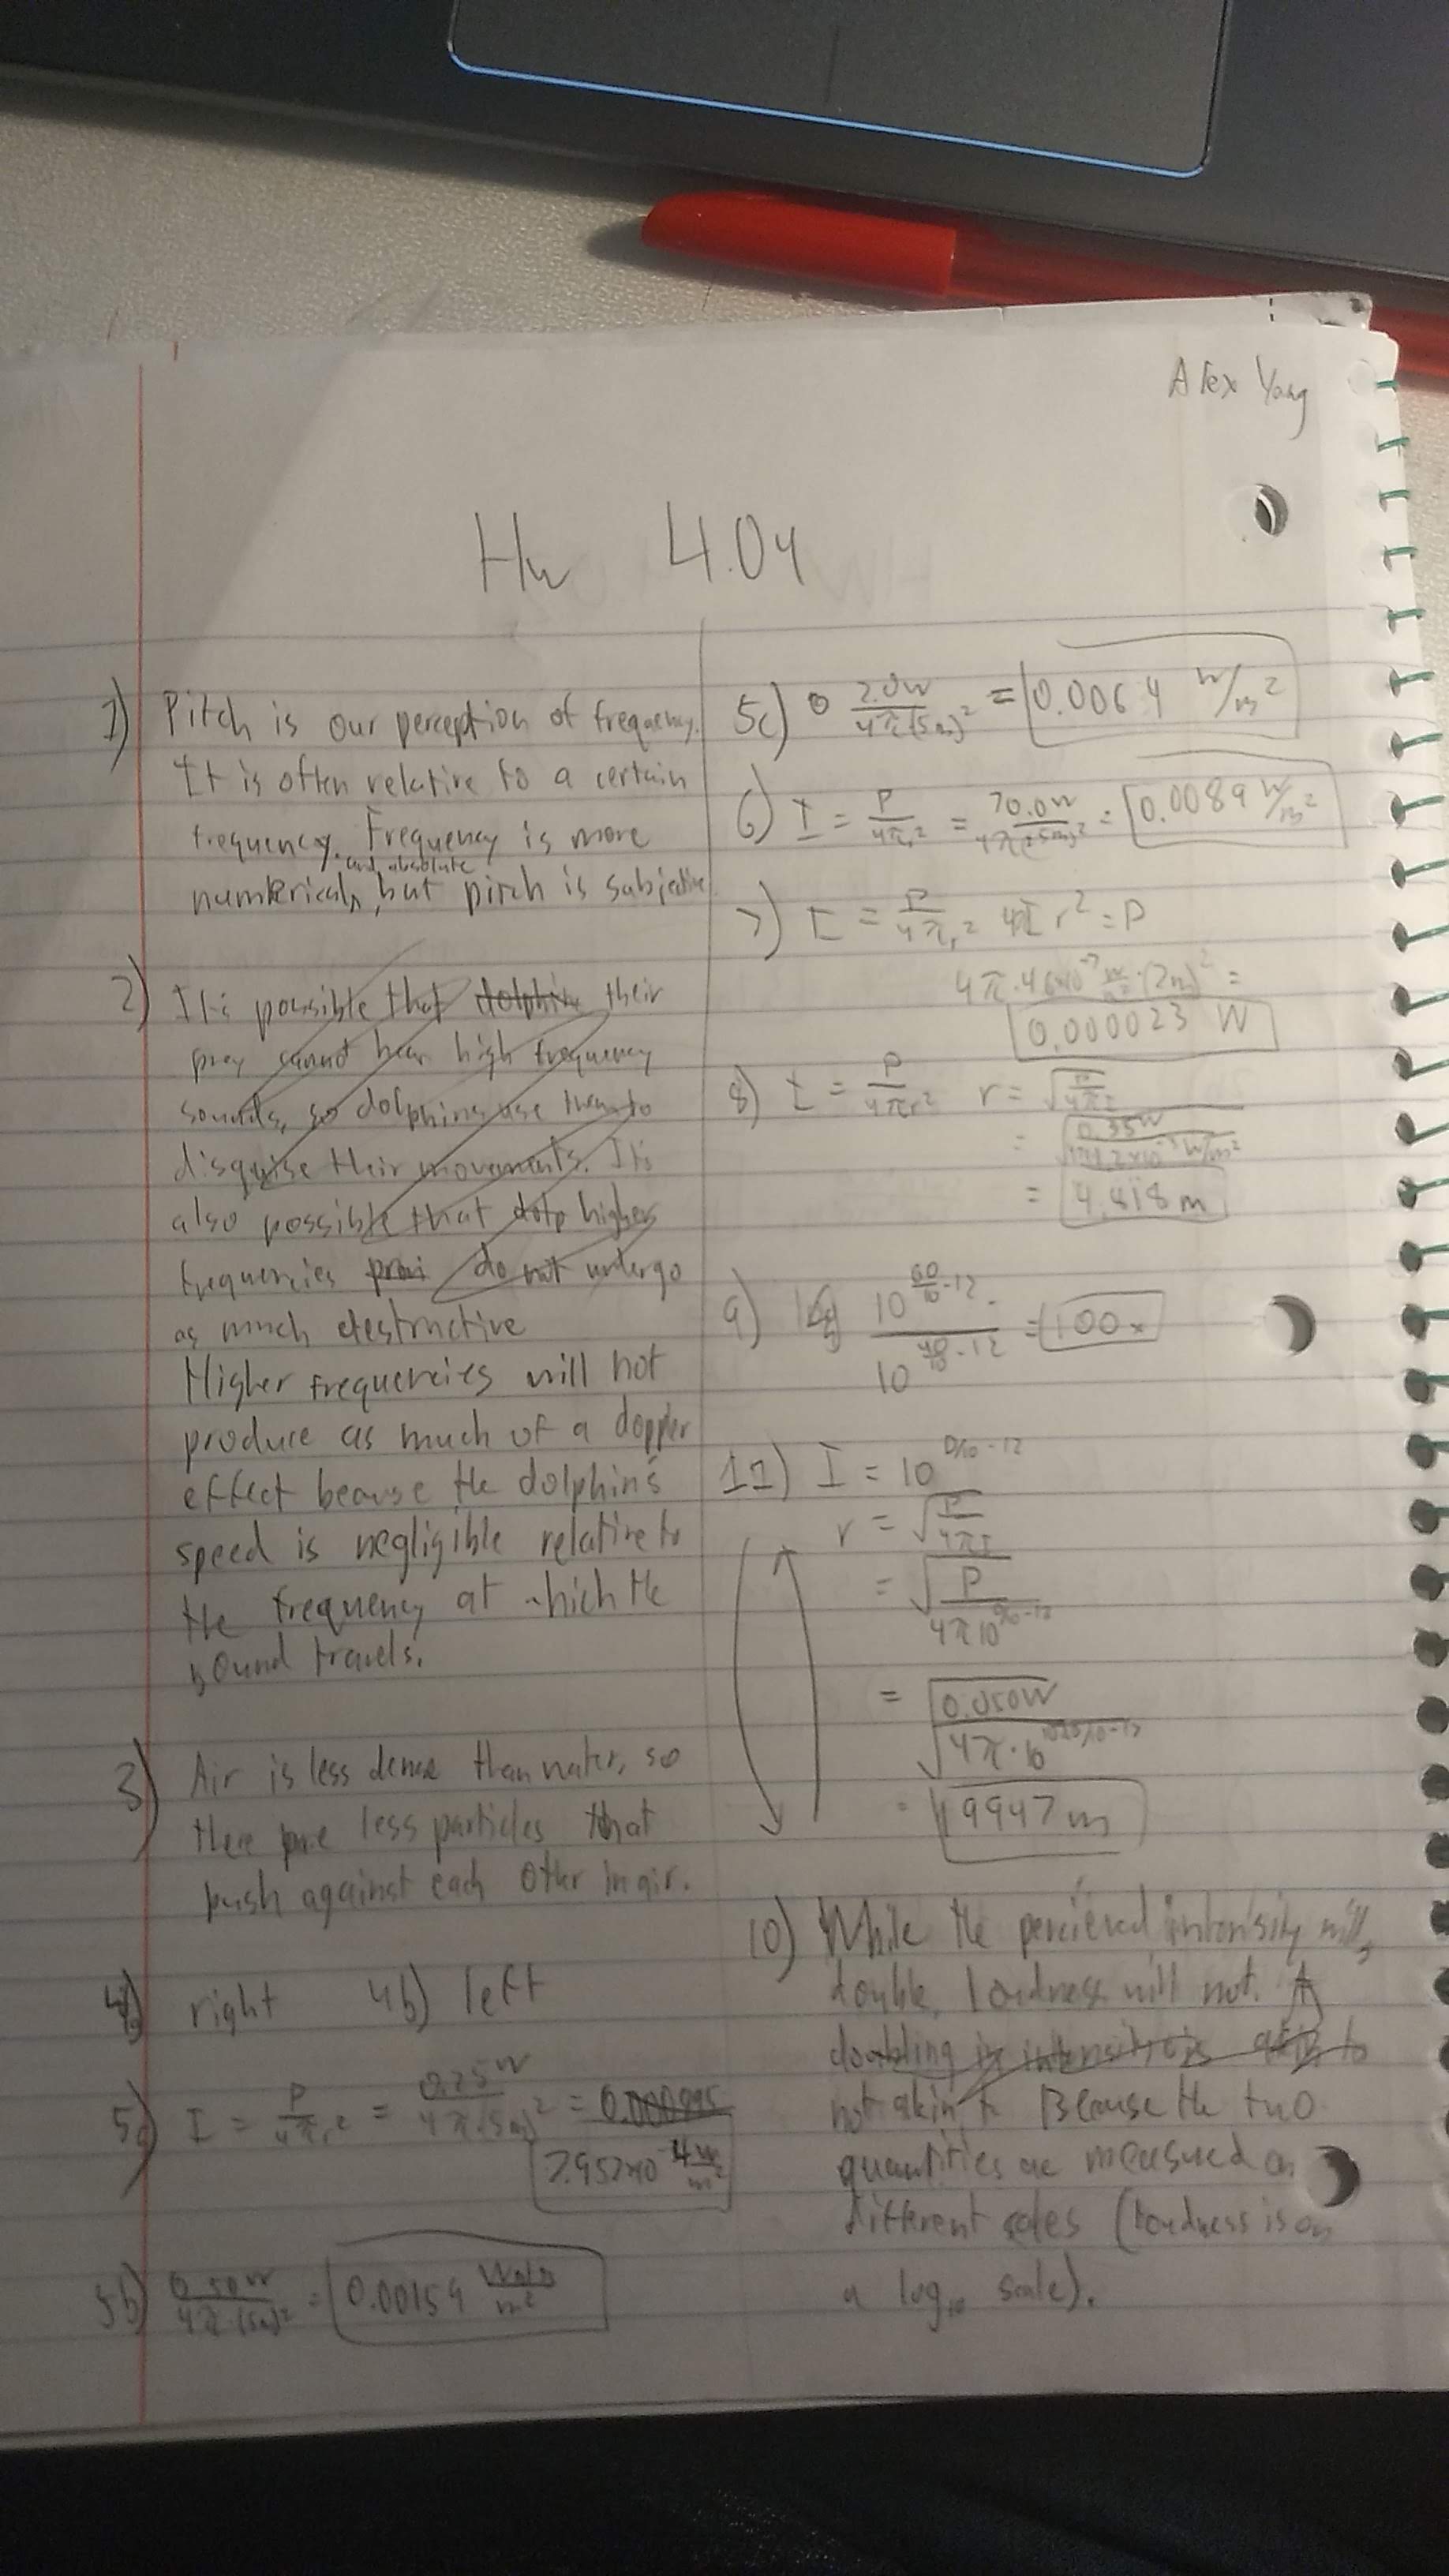 Alex Yang
Hw 4.04
1) Pitch is our perception of frequency.
It is often relative to a certain
frequency. Frequency is more
and absolute
numerical, but pitch is subjective.
2) It's possible that dolphin their
prey cannot hear high frequency
sounds, so dolphins use them to
disguise their movements. It's
also possible that dolp higher
frequencies do not undergo
as much destructive
Higher frequencies will not
produce as much of a doppler
effect because the dolphin's
speed is negligible relative to
the frequency at which the
sound travels.
3) Air is less dense than water, so
there are less particles that
push against each other in air.
4a) right 4b) left
5a) I = P/4πr² = 0.25W/4π(5m)² = 0.000995
7.957x10⁻⁴ W/m²
5b) 0.50W/4π(5m)² = 0.00159 Watts/m²
5c) 2.0W/4π(5m)² = 0.0064 W/m²
6) I = P/4πr² = 70.0W/4π(25m)² = 0.0089 W/m²
7) I = P/4πr² 4πIr² = P
4π·4.6x10⁻⁷ W/m²·(2m)² =
0.000023 W
8) I = P/4πr² r = √(P/4πI)
= √(0.35W/4π·1.2x10⁻³ W/m²)
= 4.818 m
9) 10^(60/10-12) / 10^(40/10-12) = 100x
11) I = 10^(β/10-12)
r = √(P/4πI)
= √(P/4π10^(β/10-12))
= √(0.050W/4π·10^)
= 9947 m
10) While the percieved intensity will
double, loudness will not. A
doubling in intensity is akin to
not akin to Because the two
quantities are measured on
different scales (loudness is on
a log₁₀ scale).